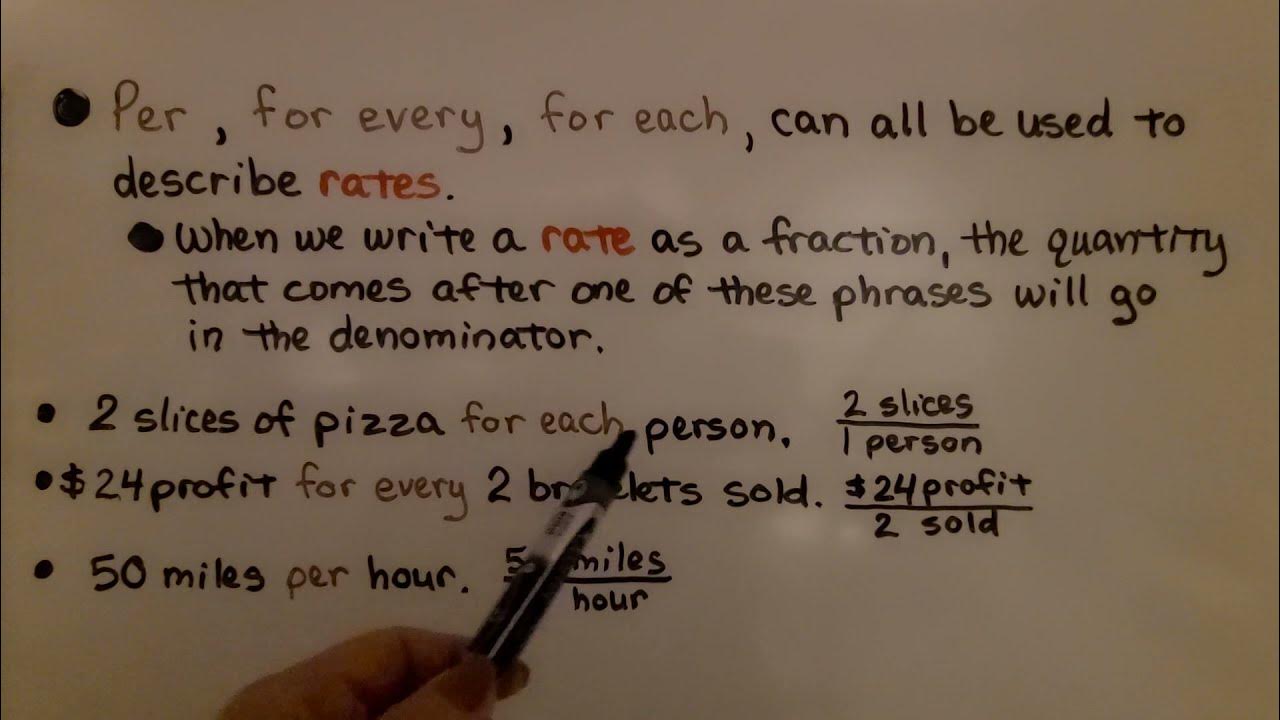 • Per, for every, for each, can all be used to
describe rates.
• When we write a rate as a fraction, the quantity
that comes after one of these phrases will go
in the denominator.
• 2 slices of pizza for each person. 2 slices
1 person
• $24 profit for every 2 sold. $24 profit
2 sold
• 50 miles per hour. miles
hour